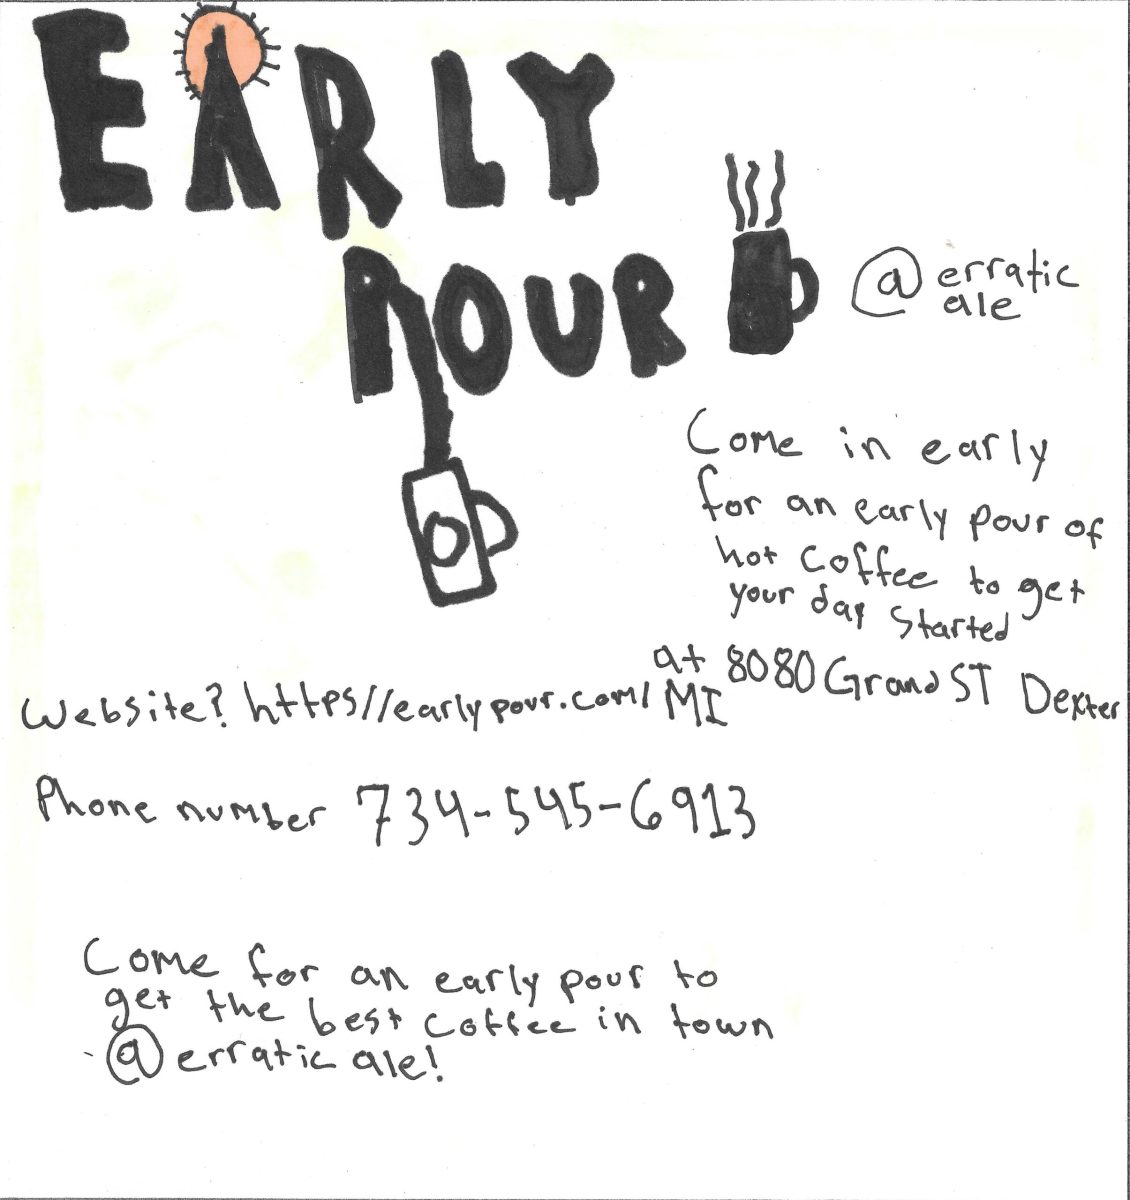 EARLY
POUR
@ erratic
ale
Come in early
for an early pour of
hot coffee to get
your day started
at 8080 Grand ST Dexter
MI
Website? https//earlypour.com/
Phone number 734-545-6913
Come for an early pour to
get the best coffee in town
@ erratic ale!